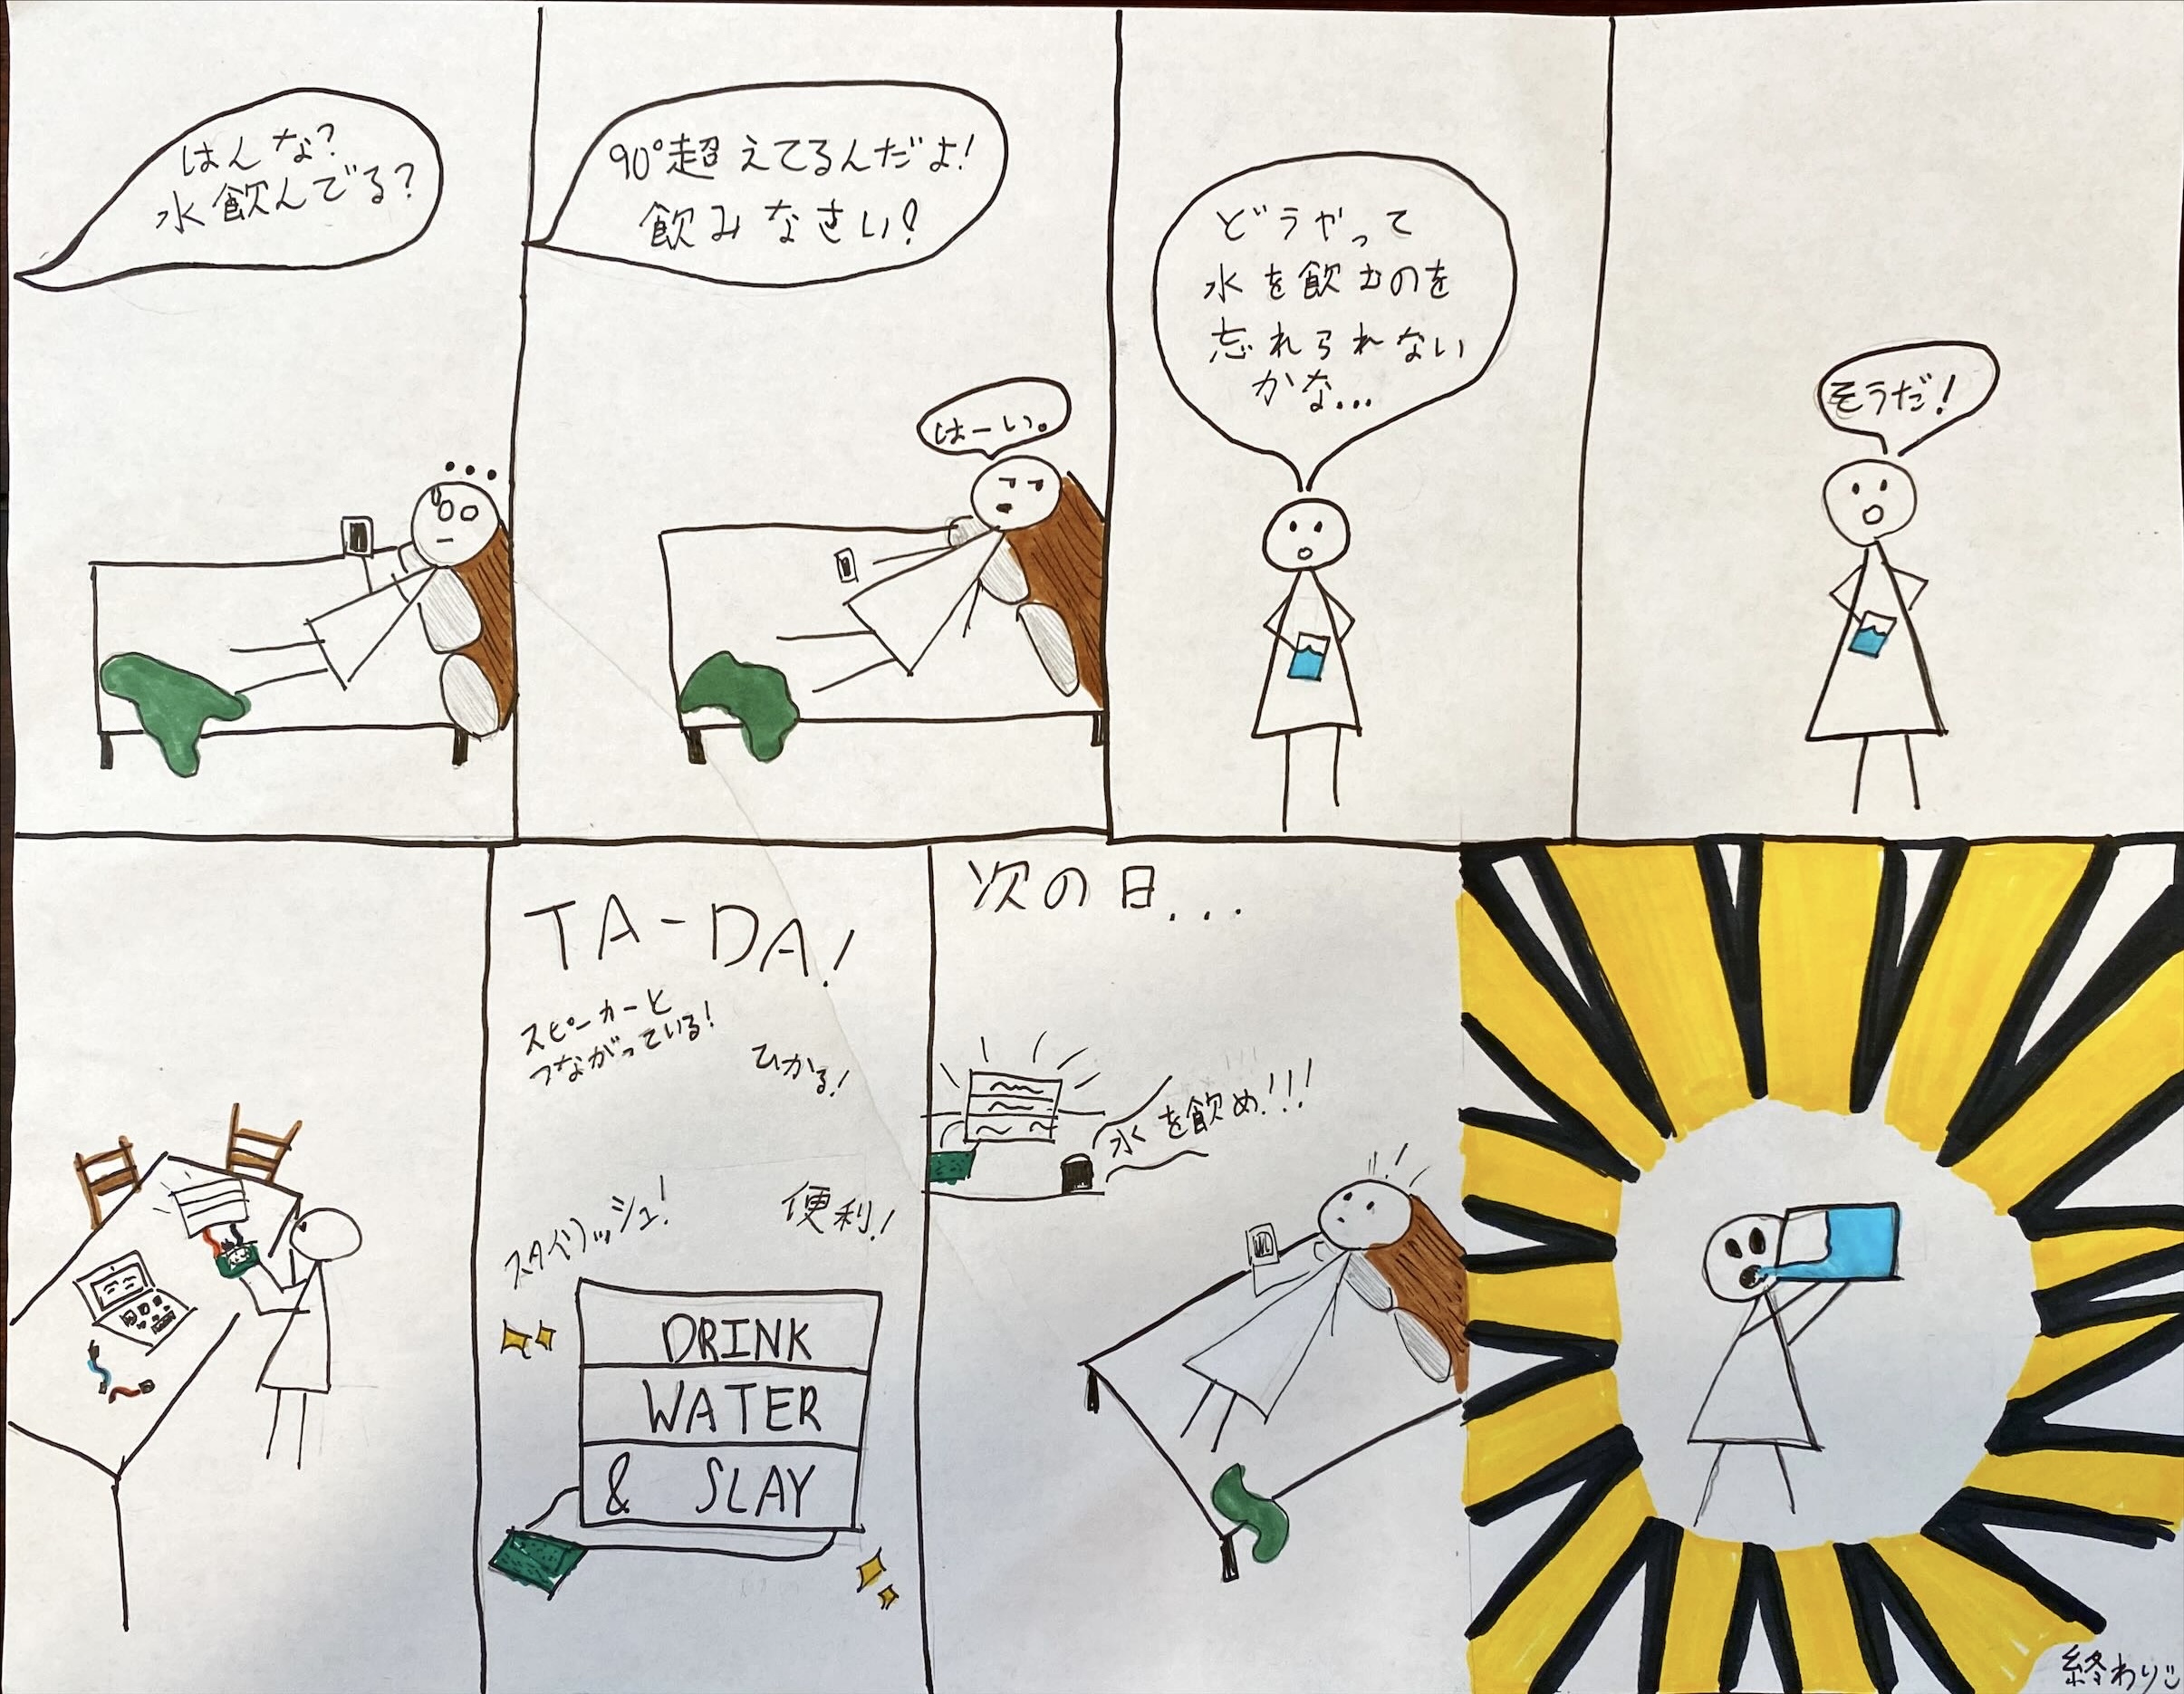 はんな?
水飲んでる?
90°超えてるんだよ!
飲みなさい!
はーい。
どうやって
水を飲むのを
忘れられない
かな...
そうだ!
TA-DA!
スピーカーと
つながっている!
ひかる!
スタイリッシュ!
便利!
DRINK
WATER
& SLAY
次の日...
水を飲め!!!
終わり